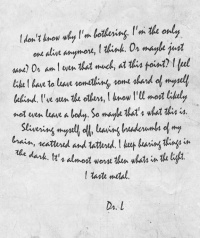 I don't know why I'm bothering. I'm the only
one alive anymore, I think. Or maybe just
sane? Or am I even that much, at this point? I feel
like I have to leave something, some shard of myself
behind. I've seen the others, I know I'll most likely
not even leave a body. So maybe that's what this is.
Slivering myself off, leaving breadcrumbs of my
brain, scattered and tattered. I keep hearing things in
the dark. It's almost worse then whats in the light.
I taste metal.
Dr. L